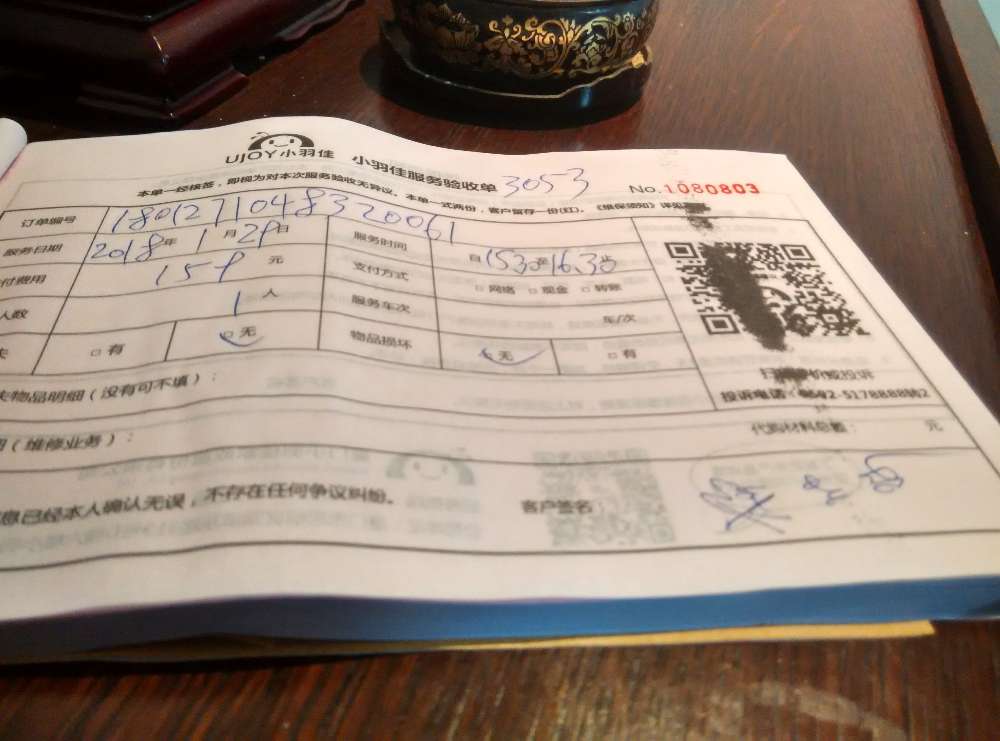 UJOY小羽佳 小羽佳服务验收单 3053 No.1080803
本单一经核签，即视为对本次服务验收无异议。本单一式两份，客户留存一份(红)。《维保须知》详见
订单编号 1801271048320061
服务日期 2018年1月29日 服务时间 自1530至16.30
付费用 159元 支付方式 □网络 □现金 □转账
人数 1人 服务车次 车/次
失 □有 □无 物品损坏 □无 □有
失物品明细（没有可不填）：
投诉电话：0592-5178888转2
（维修业务）： 代购材料总额： 元
息已经本人确认无误，不存在任何争议纠纷。 客户签名：